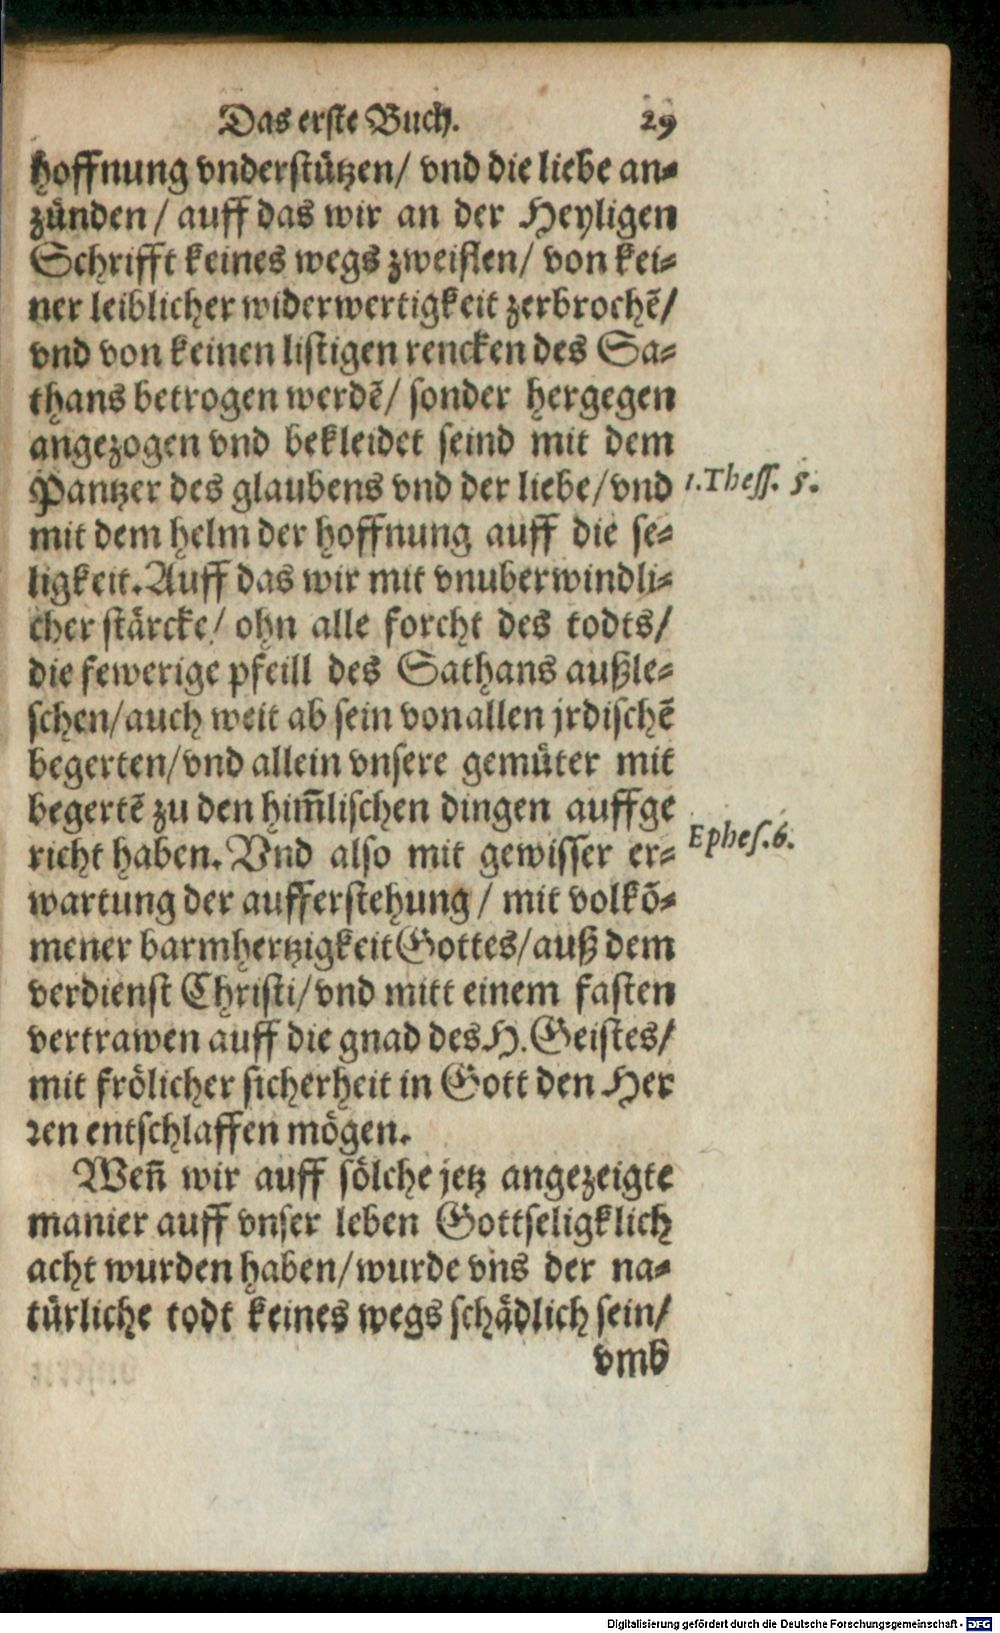 Das erste Buch. 29
hoffnung vnderstützen/ vnd die liebe an-
zünden/ auff das wir an der Heyligen
Schrifft keines wegs zweiflen/ von kei-
ner leiblicher widerwertigkeit zerbrochē/
vnd von keinen listigen rencken des Sa-
thans betrogen werdē/ sonder hergegen
angezogen vnd bekleidet seind mit dem
Pantzer des glaubens vnd der liebe/ vnd
1.Thess. 5.
mit dem helm der hoffnung auff die se-
ligkeit. Auff das wir mit vnuberwindli-
cher stärcke/ ohn alle forcht des todts/
die fewerige pfeill des Sathans außle-
schen/ auch weit ab sein von allen jrdischē
begerten/ vnd allein vnsere gemüter mit
begertē zu den him̄lischen dingen auffge
Ephes.6.
richt haben. Vnd also mit gewisser er-
wartung der aufferstehung/ mit volkō-
mener barmhertzigkeit Gottes/ auß dem
verdienst Christi/ vnd mitt einem fasten
vertrawen auff die gnad des H. Geistes/
mit frölicher sicherheit in Gott den Her
ren entschlaffen mögen.
Wen̄ wir auff sölche jetz angezeigte
manier auff vnser leben Gottseligklich
acht wurden haben/ wurde vns der na-
türliche todt keines wegs schädlich sein/
vmb
Digitalisierung gefördert durch die Deutsche Forschungsgemeinschaft - DFG